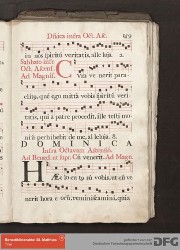 Dñica infra Oct. Asc. 159
in nos spiritū veritatis, alleluia.
Sabbato infr
Oct. Ascens.
Ad Magnif. Cum vene rit para
clitus, quē ego mittā vobis spiritū veri
tatis, qui a patre procedit, ille testimo
niū perhibebit de me, alleluia.
DOMINICA
Infra Octavam Ascensio.
Ad Bened. ut supr. Cū venerit. Ad Magn.
Hæc locutus sū vobis, ut cū ve
nerit hora eorū, reminiscamini, quia
Benediktinerabtei St. Matthias
Trier
gefördert von
DFG